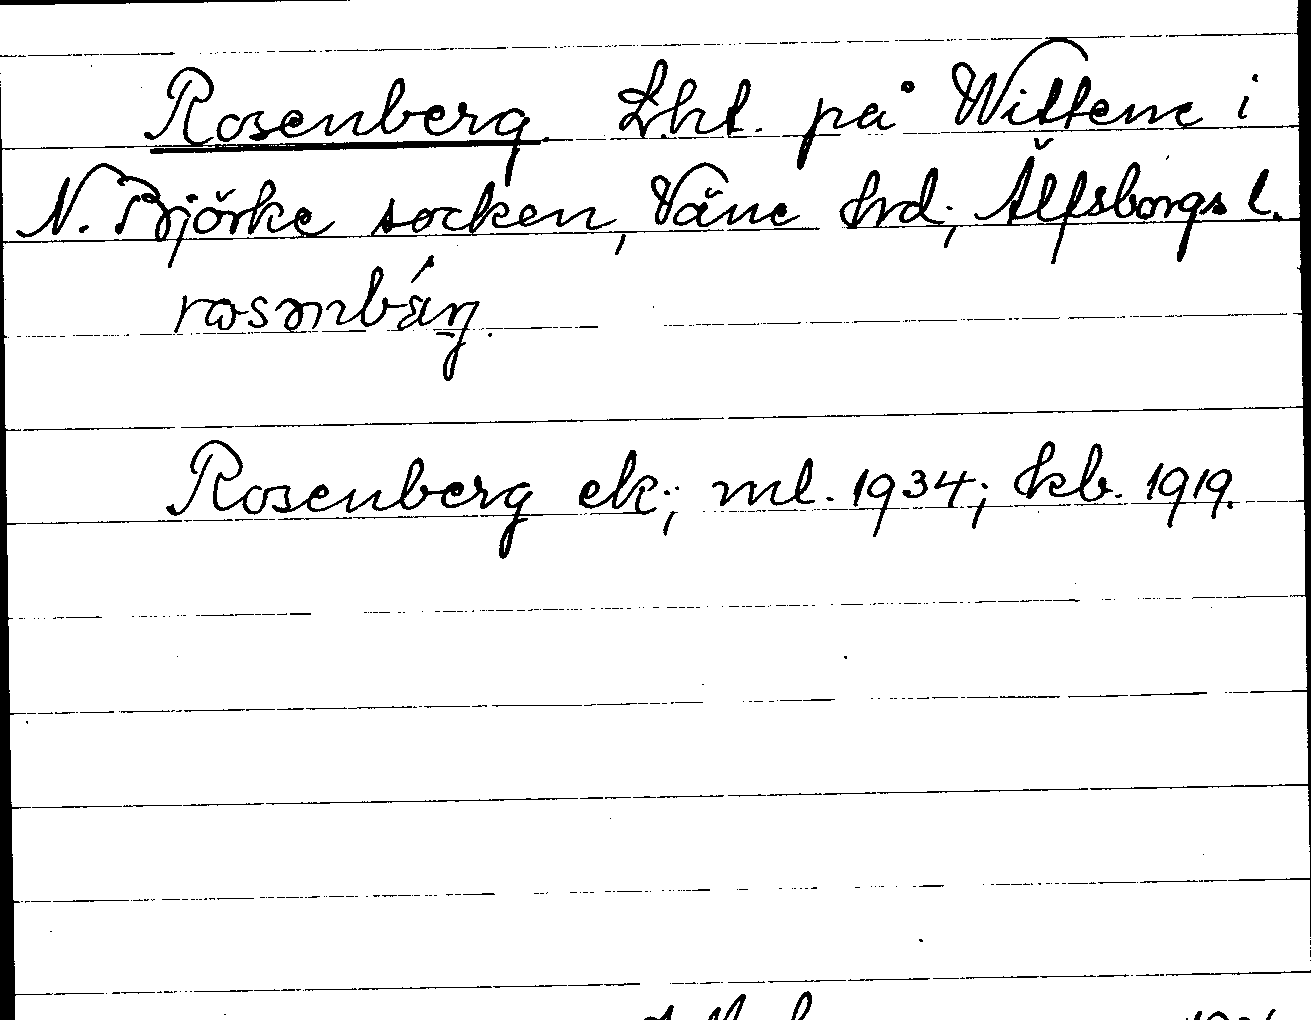 Rosenberg. Lht. på Wittene i
N. Björke socken, Väne hrd; Älfsborgs l.
Rosenberg ek; ml. 1934; kb. 1919.